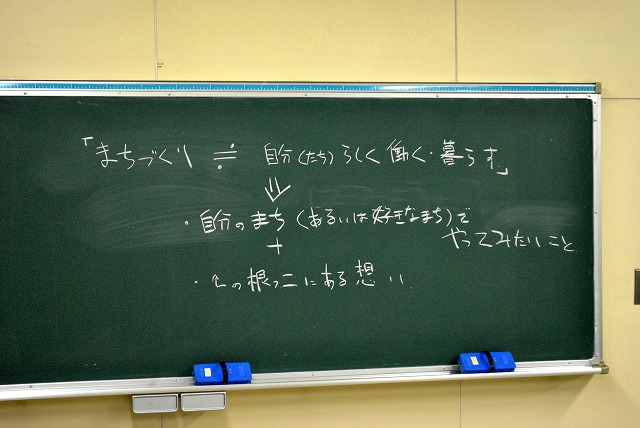 「まちづくり ≒ 自分(たち)らしく働く・暮らす」
⇓
・自分のまち(あるいは好きなまち)で
やってみたいこと
+
・↑の根っこにある想い